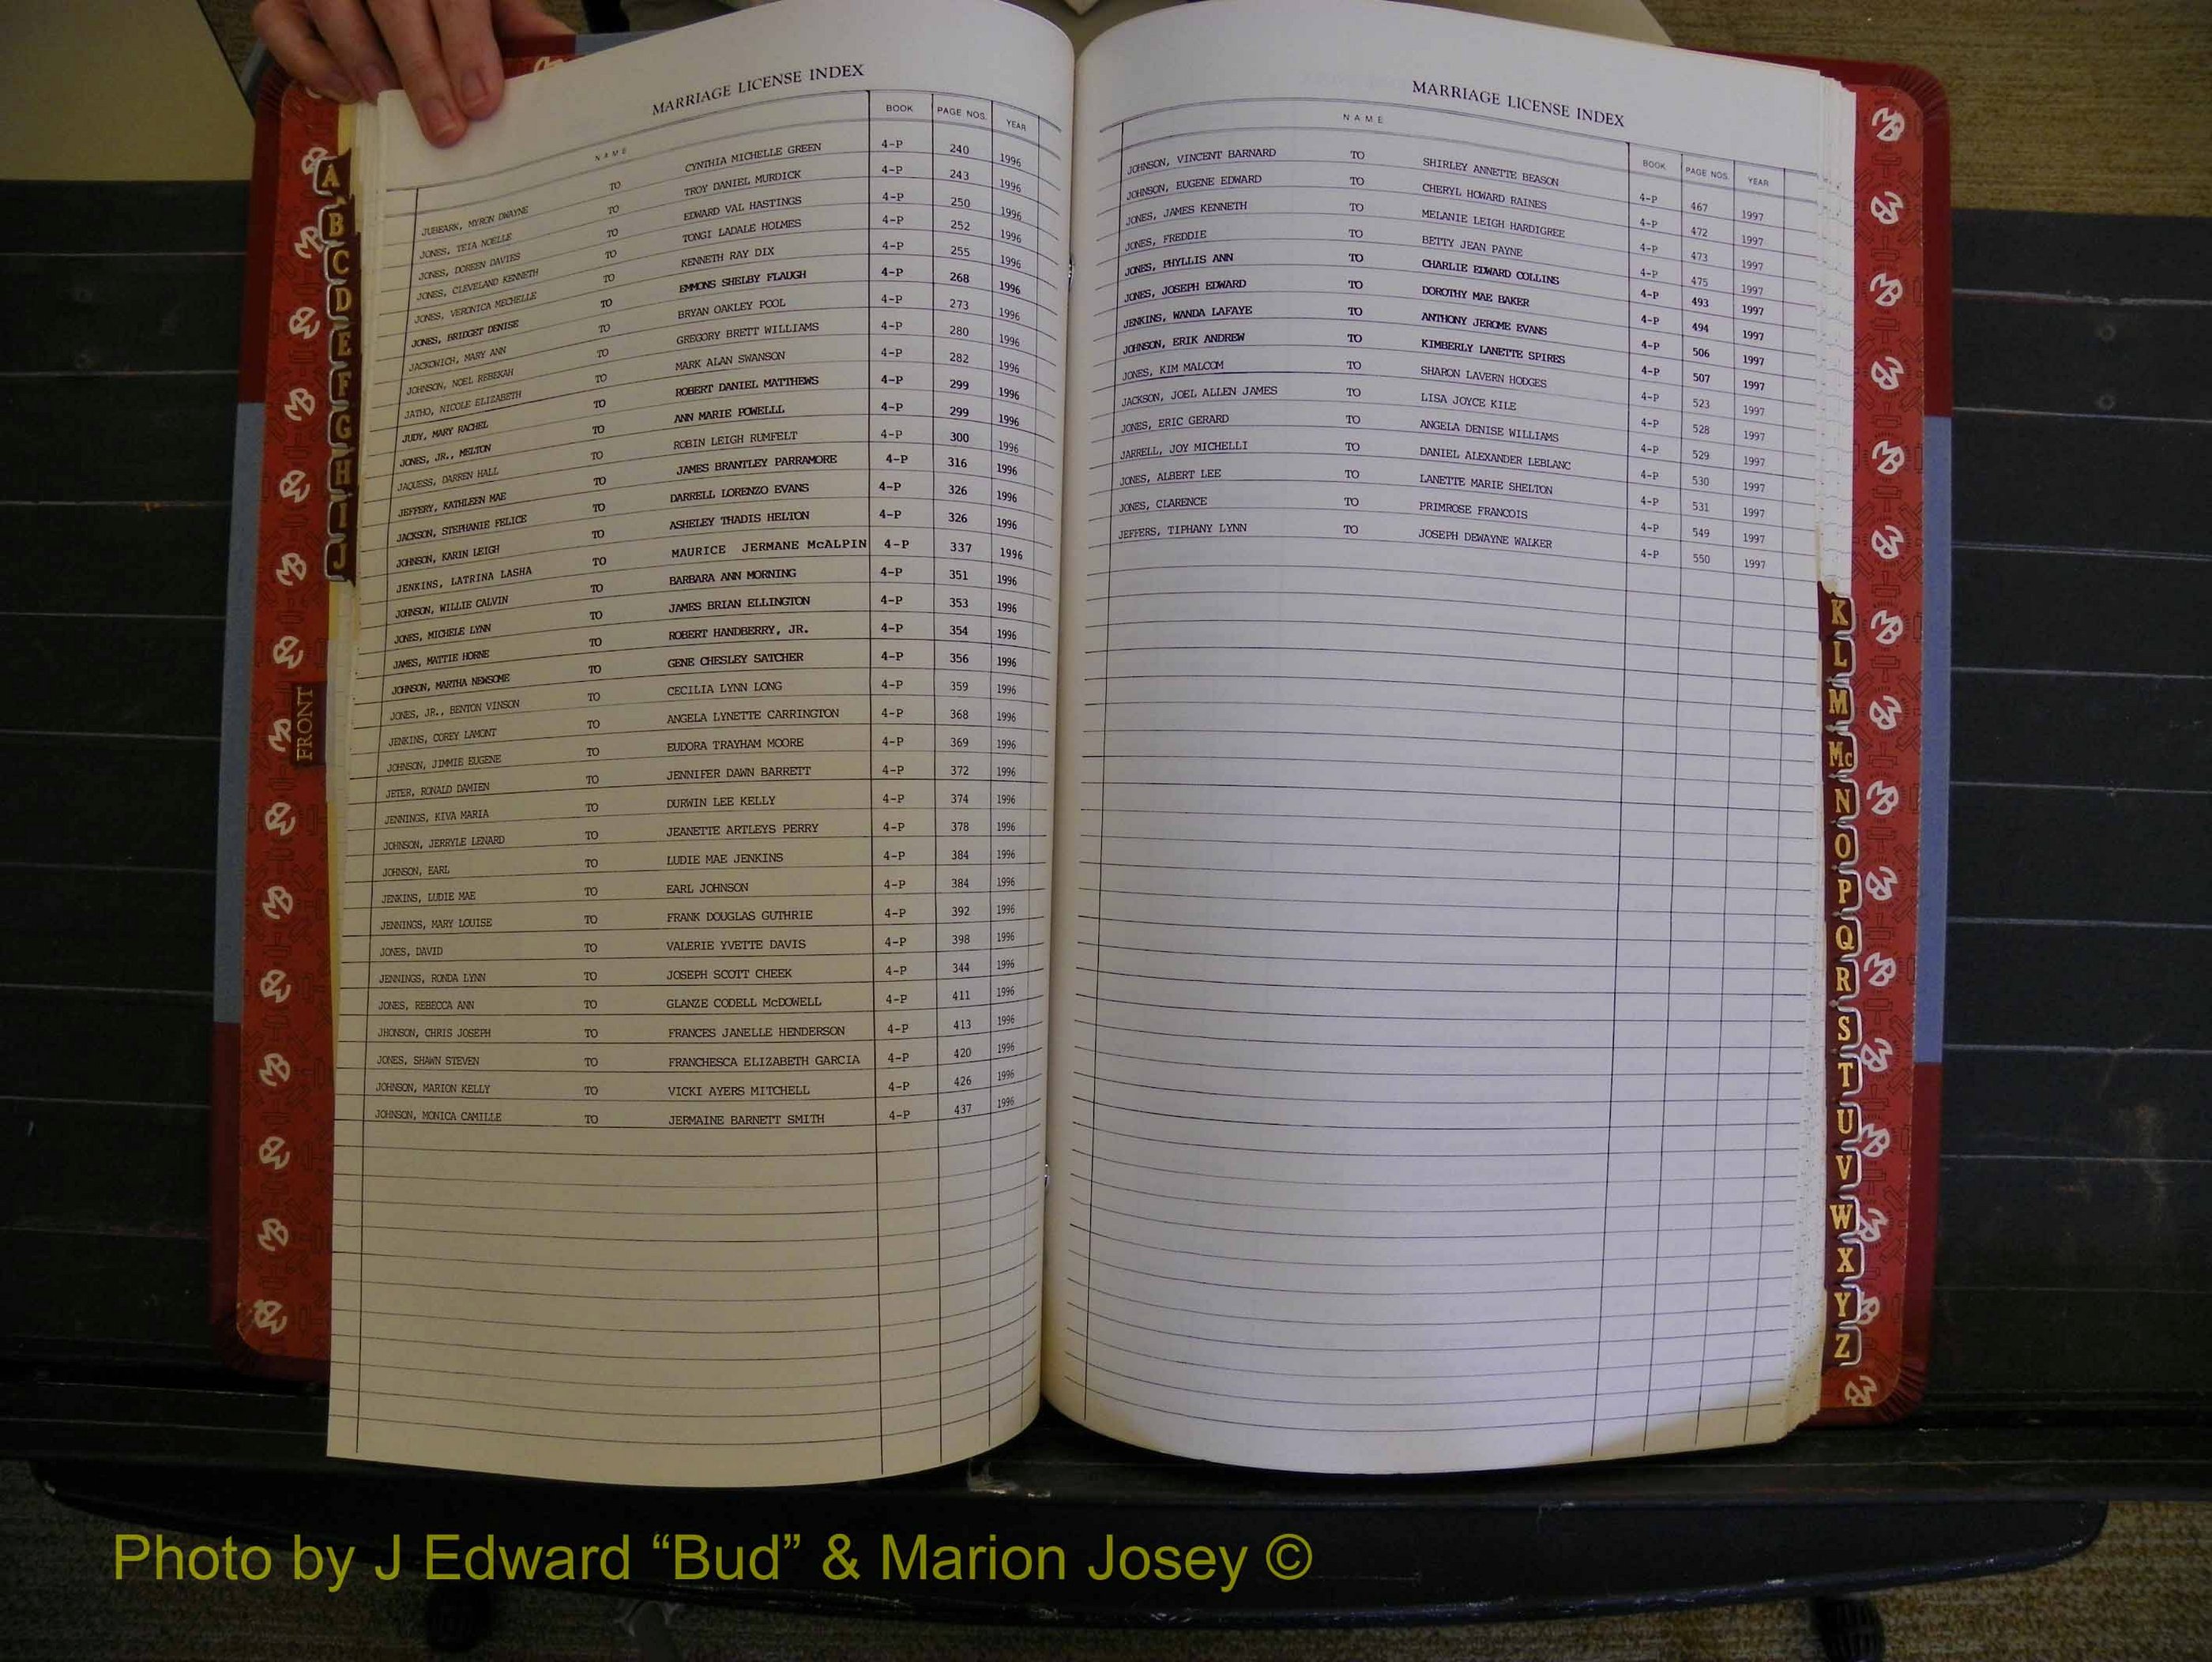 MARRIAGE LICENSE INDEX
NAME BOOK PAGE NOS. YEAR
JUBEARK, MYRON DWAYNE TO CYNTHIA MICHELLE GREEN 4-P 240 1996
JONES, TEIA NOELLE TO TROY DANIEL MURDICK 4-P 243 1996
JONES, DOREEN DAVIES TO EDWARD VAL HASTINGS 4-P 250 1996
JONES, CLEVELAND KENNETH TO TONGI LADALE HOLMES 4-P 252 1996
JONES, VERONICA MECHELLE TO KENNETH RAY DIX 4-P 255 1996
JONES, BRIDGET DENISE TO EMMONS SHELBY FLAUGH 4-P 268 1996
JACKOWICH, MARY ANN TO BRYAN OAKLEY POOL 4-P 273 1996
JOHNSON, NOEL REBEKAH TO GREGORY BRETT WILLIAMS 4-P 280 1996
JATHO, NICOLE ELIZABETH TO MARK ALAN SWANSON 4-P 282 1996
JUDY, MARY RACHEL TO ROBERT DANIEL MATTHEWS 4-P 299 1996
JONES, JR., MELTON TO ANN MARIE POWELLL 4-P 299 1996
JAQUESS, DARREN HALL TO ROBIN LEIGH RUMFELT 4-P 300 1996
JEFFERY, KATHLEEN MAE TO JAMES BRANTLEY PARRAMORE 4-P 316 1996
JACKSON, STEPHANIE FELICE TO DARRELL LORENZO EVANS 4-P 326 1996
JOHNSON, KARIN LEIGH TO ASHELEY THADIS HELTON 4-P 326 1996
JENKINS, LATRINA LASHA TO MAURICE JERMANE McALPIN 4-P 337 1996
JOHNSON, WILLIE CALVIN TO BARBARA ANN MORNING 4-P 351 1996
JONES, MICHELE LYNN TO JAMES BRIAN ELLINGTON 4-P 353 1996
JAMES, MATTIE HORNE TO ROBERT HANDBERRY, JR. 4-P 354 1996
JOHNSON, MARTHA NEWSOME TO GENE CHESLEY SATCHER 4-P 356 1996
JONES, JR., BENTON VINSON TO CECILIA LYNN LONG 4-P 359 1996
JENKINS, COREY LAMONT TO ANGELA LYNETTE CARRINGTON 4-P 368 1996
JOHNSON, JIMMIE EUGENE TO EUDORA TRAYHAM MOORE 4-P 369 1996
JETER, RONALD DAMIEN TO JENNIFER DAWN BARRETT 4-P 372 1996
JENNINGS, KIVA MARIA TO DURWIN LEE KELLY 4-P 374 1996
JOHNSON, JERRYLE LENARD TO JEANETTE ARTLEYS PERRY 4-P 378 1996
JOHNSON, EARL TO LUDIE MAE JENKINS 4-P 384 1996
JENKINS, LUDIE MAE TO EARL JOHNSON 4-P 384 1996
JENNINGS, MARY LOUISE TO FRANK DOUGLAS GUTHRIE 4-P 392 1996
JONES, DAVID TO VALERIE YVETTE DAVIS 4-P 398 1996
JENNINGS, RONDA LYNN TO JOSEPH SCOTT CHEEK 4-P 344 1996
JONES, REBECCA ANN TO GLANZE CODELL McDOWELL 4-P 411 1996
JHONSON, CHRIS JOSEPH TO FRANCES JANELLE HENDERSON 4-P 413 1996
JONES, SHAWN STEVEN TO FRANCHESCA ELIZABETH GARCIA 4-P 420 1996
JOHNSON, MARION KELLY TO VICKI AYERS MITCHELL 4-P 426 1996
JOHNSON, MONICA CAMILLE TO JERMAINE BARNETT SMITH 4-P 437 1996
MARRIAGE LICENSE INDEX
NAME BOOK PAGE NOS. YEAR
JOHNSON, VINCENT BARNARD TO SHIRLEY ANNETTE BEASON 4-P 467 1997
JOHNSON, EUGENE EDWARD TO CHERYL HOWARD RAINES 4-P 472 1997
JONES, JAMES KENNETH TO MELANIE LEIGH HARDIGREE 4-P 473 1997
JONES, FREDDIE TO BETTY JEAN PAYNE 4-P 475 1997
JONES, PHYLLIS ANN TO CHARLIE EDWARD COLLINS 4-P 493 1997
JONES, JOSEPH EDWARD TO DOROTHY MAE BAKER 4-P 494 1997
JENKINS, WANDA LAFAYE TO ANTHONY JEROME EVANS 4-P 506 1997
JOHNSON, ERIK ANDREW TO KIMBERLY LANETTE SPIRES 4-P 507 1997
JONES, KIM MALCOM TO SHARON LAVERN HODGES 4-P 523 1997
JACKSON, JOEL ALLEN JAMES TO LISA JOYCE KILE 4-P 528 1997
JONES, ERIC GERARD TO ANGELA DENISE WILLIAMS 4-P 529 1997
JARRELL, JOY MICHELLI TO DANIEL ALEXANDER LEBLANC 4-P 530 1997
JONES, ALBERT LEE TO LANETTE MARIE SHELTON 4-P 531 1997
JONES, CLARENCE TO PRIMROSE FRANCOIS 4-P 549 1997
JEFFERS, TIPHANY LYNN TO JOSEPH DEWAYNE WALKER 4-P 550 1997
A
B
C
D
E
F
G
H
I
J
FRONT
K
L
M
Mc
N
O
P
Q
R
S
T
U
V
W
X
Y
Z
Photo by J Edward “Bud” & Marion Josey ©